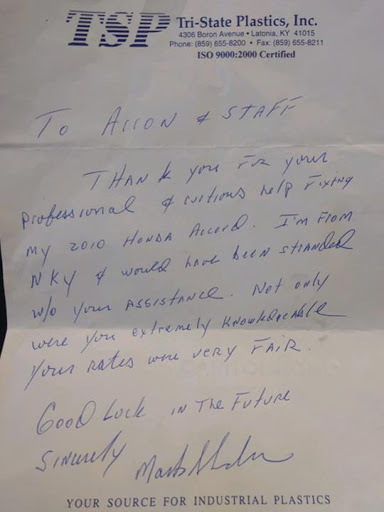 TSP Tri-State Plastics, Inc.
4306 Boron Avenue • Latonia, KY 41015
Phone: (859) 655-8200 • Fax: (859) 655-8211
ISO 9000:2000 Certified
To & STAFF
THANK you FOR your
professional & cutious help Fixing
my 2010 HONDA Accord. I'm From
NKY & would have been stranded
w/o your Assistance. Not only
were you extremely knowledgeable
your rates were very FAIR.
GOOD Luck in The Future
Sincerely
YOUR SOURCE FOR INDUSTRIAL PLASTICS